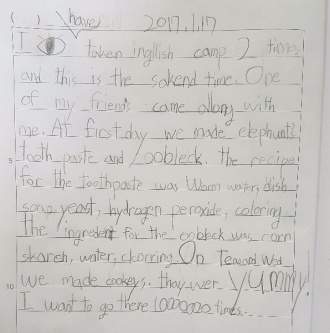 ( ) have 2017.1.17
I taken inglish camp 2 times
and this is the sekend time. One
of my friends came allong with
me. At first day we made elephunt
tooth paste and oobleck. the recipe
5
for the toothpaste was Warm water, dish
soap yeast, hydrogen peroxide, coloring
The ingredent for the oobleck was corn
skarch, water, clooring On and Wed
we made cookeys. they wer YUMMY!
10
I want to go there times.